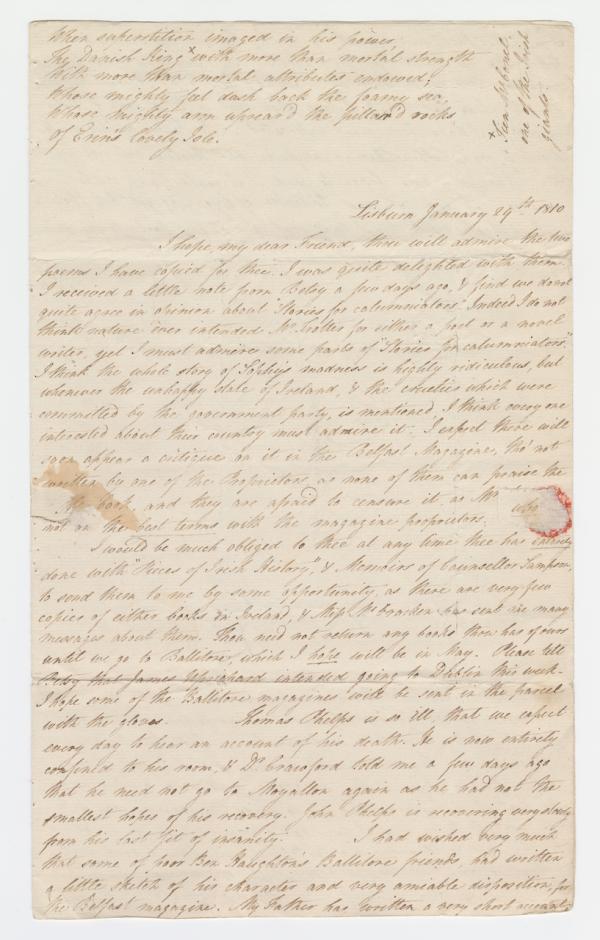 When superstition imaged in his poems
Thy Danish King x with more than mortal strength
With more than mortal attributes endowed;
Whose mighty feet dash back the foamy sea,
Whose mighty arm uprear'd the pillar'd rocks
Of Erin's lovely Isle.
x Fian
one of the Irish
giants.
Lisburn January 29th 1810
I hope, my dear Friend, thou will admire the two
poems I have copied for thee. I was quite delighted with them.
I received a little note from Betsy a few days ago, & find we do not
quite agree in opinion about "Stories for calumniators". Indeed I do not
think nature ever intended Mr. Trotter for either a poet or a novel
writer, yet I must admire some parts of "Stories for calumniators".
I think the whole story of Sophy's madness is highly ridiculous, but
whenever the unhappy state of Ireland, & the cruelties which were
committed by the government party, is mentioned, I think every one
interested about their country must admire it. I expect there will
soon appear a critique on it in the Belfast Magazine, tho' not
written by one of the Proprietors, as none of them can praise the
book, and they are afraid to censure it, as Mr.
not on the best terms with the magazine proprietors.
I would be much obliged to thee at any time thee has entirely
done with "Pieces of Irish History", & Memoirs of Counsellor Sampson,
to send them to me by some opportunity, as there are very few
copies of either books in Ireland, & Miss McCracken has sent me many
messages about them. Thou need not return any books thou has of ours
until we go to Ballitore, which I hope will be in May. Please tell
Betsy that James intended going to Dublin this week.
I hope some of the Ballitore magazines will be sent in the parcel
with the gloves. Thomas Phelps is so ill, that we expect
every day to hear an account of his death. He is now entirely
confined to his room, & Dr. Crawford told me a few days ago
that he need not go to Moyallon again as he had not the
smallest hopes of his recovery. John Phelps is recovering very slowly
from his last fit of insanity. I had wished very much
that some of poor Ben Haughton's Ballitore friends, had written
a little sketch of his character and very amiable disposition, for
the Belfast magazine. My Father has written a very short account